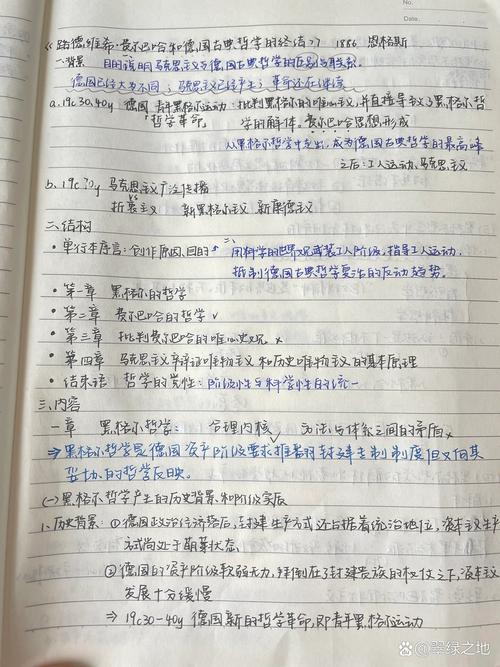 No.
Date.
《路德维希·费尔巴哈和德国古典哲学的终结》 1886 恩格斯
一背景 目的:说明马克思主义与德国古典哲学的区别与联系.
德国已经大为不同;马克思主义已经产生;革命还在继续
a.19c 30.40y 德国 青年黑格尔运动:批判黑格尔的唯心主义,并直接导致了黑格尔哲
"哲学革命" 学的解体.费尔巴哈思想形成
从黑格尔哲学中走出,成为德国古典哲学的最高峰
之后:工人运动、马克思主义
b.19c 70y 马克思主义广泛传播
vs
折衷主义 新黑格尔主义 新康德主义
二.结构
·单行本序言:创作原因、目的 用科学的世界观武装工人阶级,指导工人运动,
抵制德国古典哲学复生的反动趋势.
·第一章 黑格尔的哲学
·第二章 费尔巴哈的哲学 ✓
·第三章 批判费尔巴哈的唯心史观 ×
·第四章 马克思主义辩证唯物主义和历史唯物主义的基本原理
·结束语 哲学的党性:阶级性与科学性的统一
三.内容
一章 黑格尔哲学: 合理内核✓ 方法与体系之间的矛盾×
⇒黑格尔哲学是德国资产阶级要求推翻封建专制制度但又向其
妥协的哲学反映.
(一)黑格尔哲学产生的历史背景和阶级实质
1、历史背景:①德国政治经济落后,封建生产方式还占据着统治地位,资本主义生产
方式尚处于萌芽状态
②德国的资产阶级软弱无力,拜倒在了封建贵族的权仗之下,资本主义
发展十分缓慢
⇒19c30-40y 德国新的哲学革命,即青年黑格尔运动
翠绿之地